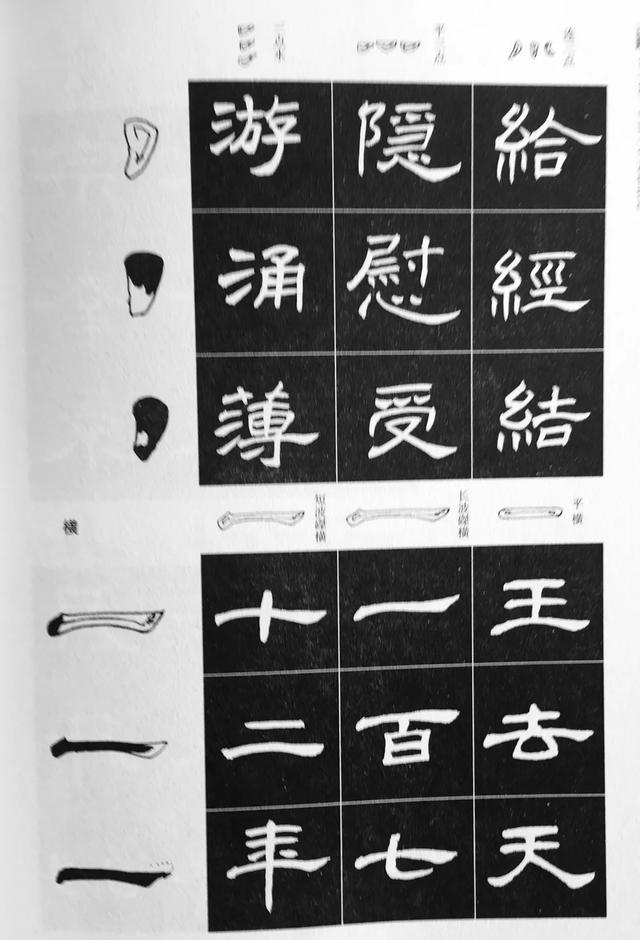 连三点
給經結
平三点
隱慰受
三点水
游涌薄
平横
王去天
长波磔横
一百七
短波磔横
十二年
横